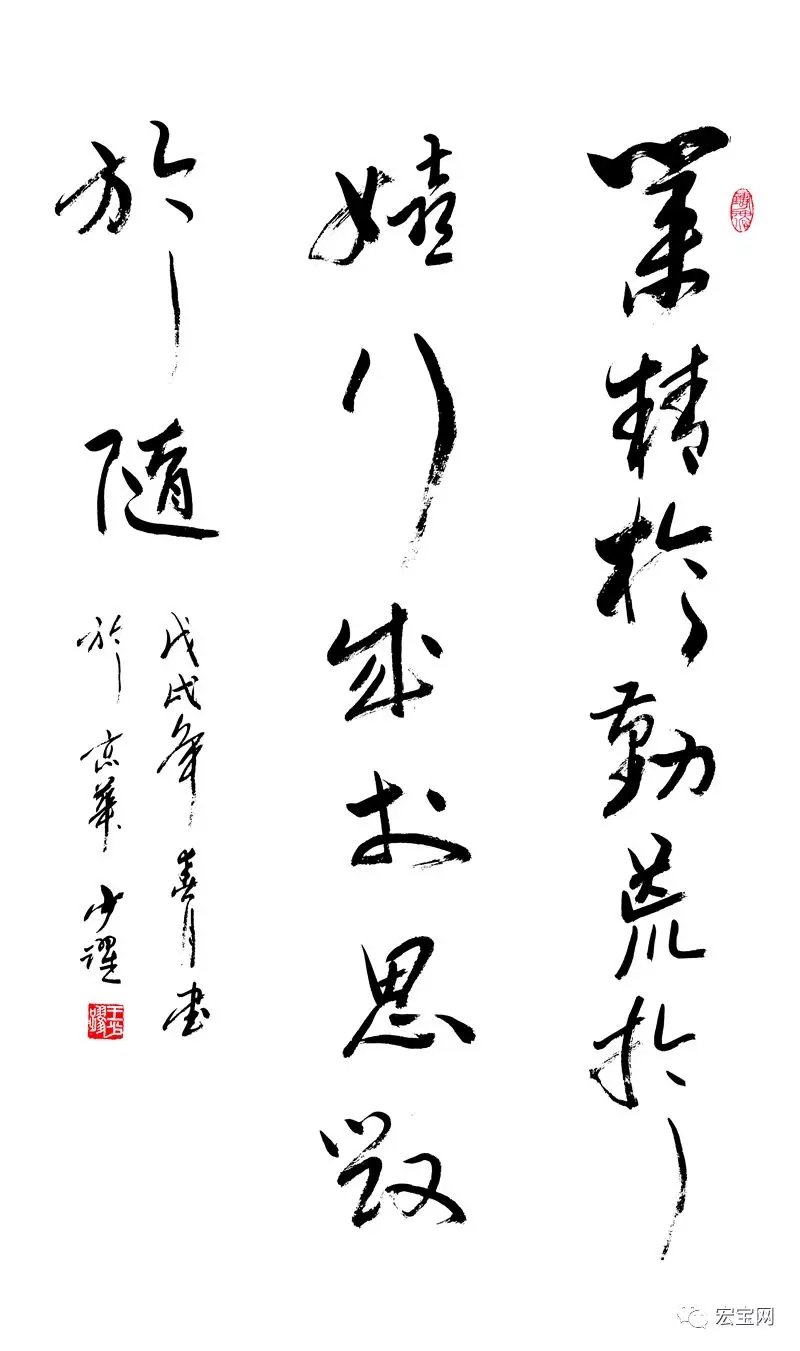 業精於勤荒於
嬉行成於思毀
於隨
戊戌年春月書
於京華少躍
宏宝网